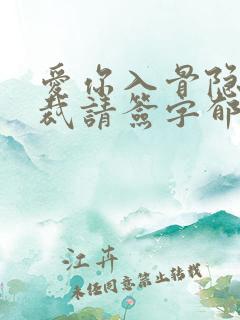 愛你入骨隐
裁請簽字郁
江卉
未经同意禁止转载